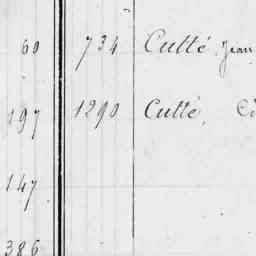 60 734 Cutté Jean
197 1290 Cutté,
147
386